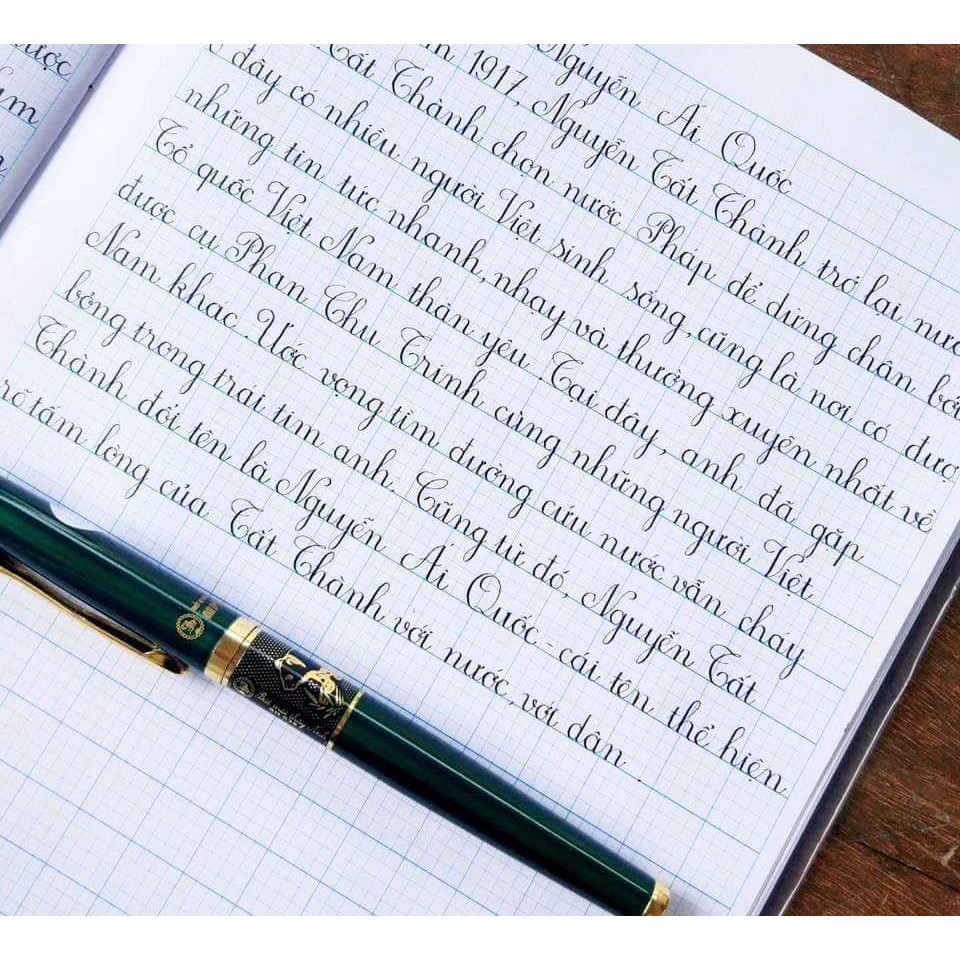 được
Nguyễn Ái Quốc
1917, Nguyễn Tất Thành trở lại
Tất Thành chọn nước Pháp để dừng chân bởi
đây có nhiều người Việt sinh sống, cũng là nơi có được
những tin tức nhanh, nhạy và thường xuyên nhất về
Tổ quốc Việt Nam thân yêu. Tại đây, anh đã gặp
được cụ Phan Chu Trinh cùng những người Việt
Nam khác. Ước vọng tìm đường cứu nước vẫn cháy
bỏng trong trái tim anh. Cũng từ đó, Nguyễn Tất
Thành đổi tên là Nguyễn Ái Quốc - cái tên thể hiện
rõ tấm lòng của Tất Thành với nước, với dân.